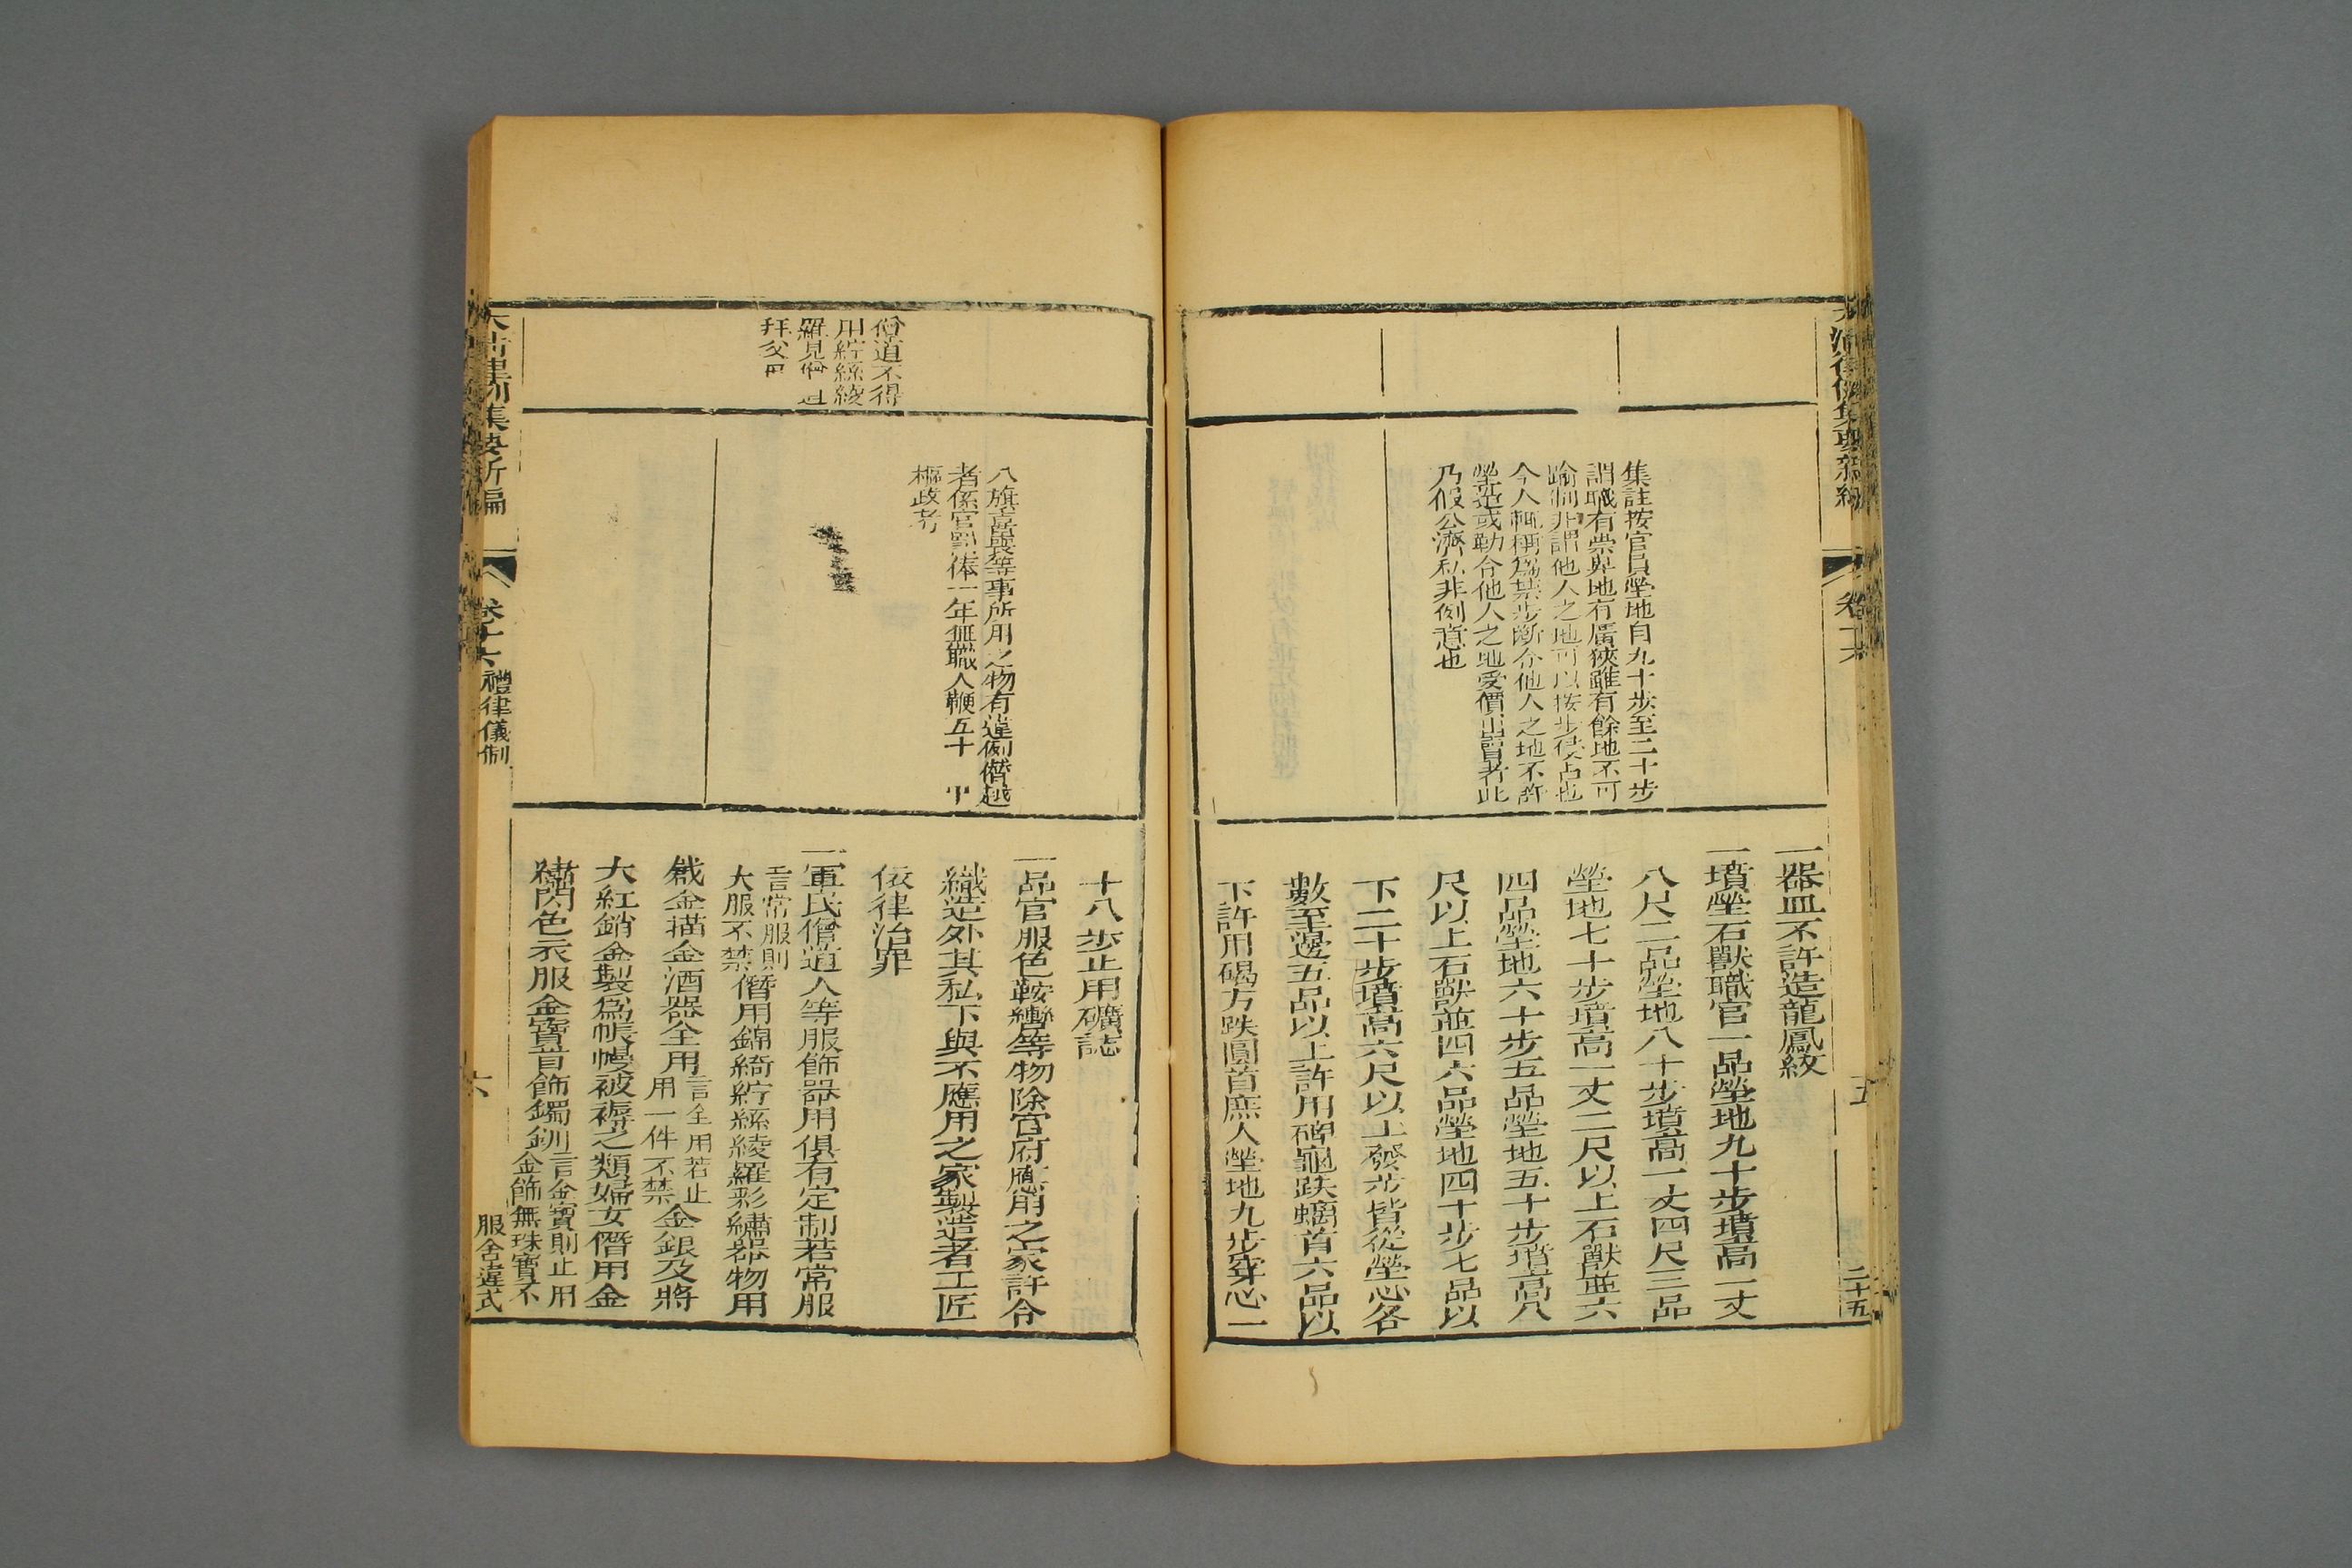 集註按官員塋地自九十步至二十步
謂職有崇卑地有廣狹雖有餘地不可
踰制非謂他人之地可以按步侵占也
今人輒稱爲禁步斷令他人之地不許
塋造或勒令他人之地受價出賣者此
乃假公濟私非例意也
一器皿不許造龍鳳紋
一墳塋石獸職官一品塋地九十步墳高一丈
八尺二品塋地八十步墳高一丈四尺三品
塋地七十步墳高一丈二尺以上石獸並六
四品塋地六十步五品塋地五十步墳高八
尺以上石獸並四六品塋地四十步七品以
下二十步墳高六尺以上發步皆從塋心各
數至邊五品以上許用碑龜趺螭首六品以
下許用碣方趺圓首庶人塋地九步穿心一
五
二十五
僧道不得
用紵絲綾
拜父
八旗喜喪等事所用之物有違例僭越
者係官罰俸一年無職人鞭五十 中
樞政考
十八步止用礦誌
一品官服色鞍轡等物除官府應用之家許令
織造外其私下與不應用之家製造者工匠
依律治罪
一軍民僧道人等服飾器用俱有定制若常服
言常服則
大服不禁
僭用錦綺紵絲綾羅彩繡器物用
戧金描金酒器全用
言全用若止
用一件不禁
金銀及將
大紅銷金製爲帳幔被褥之類婦女僭用金
繡閃色衣服金寶首飾鐲釧
言金寶則止用
金飾無珠寶不
大清律例集要新編
卷十六
禮律儀制
六
服舍違式